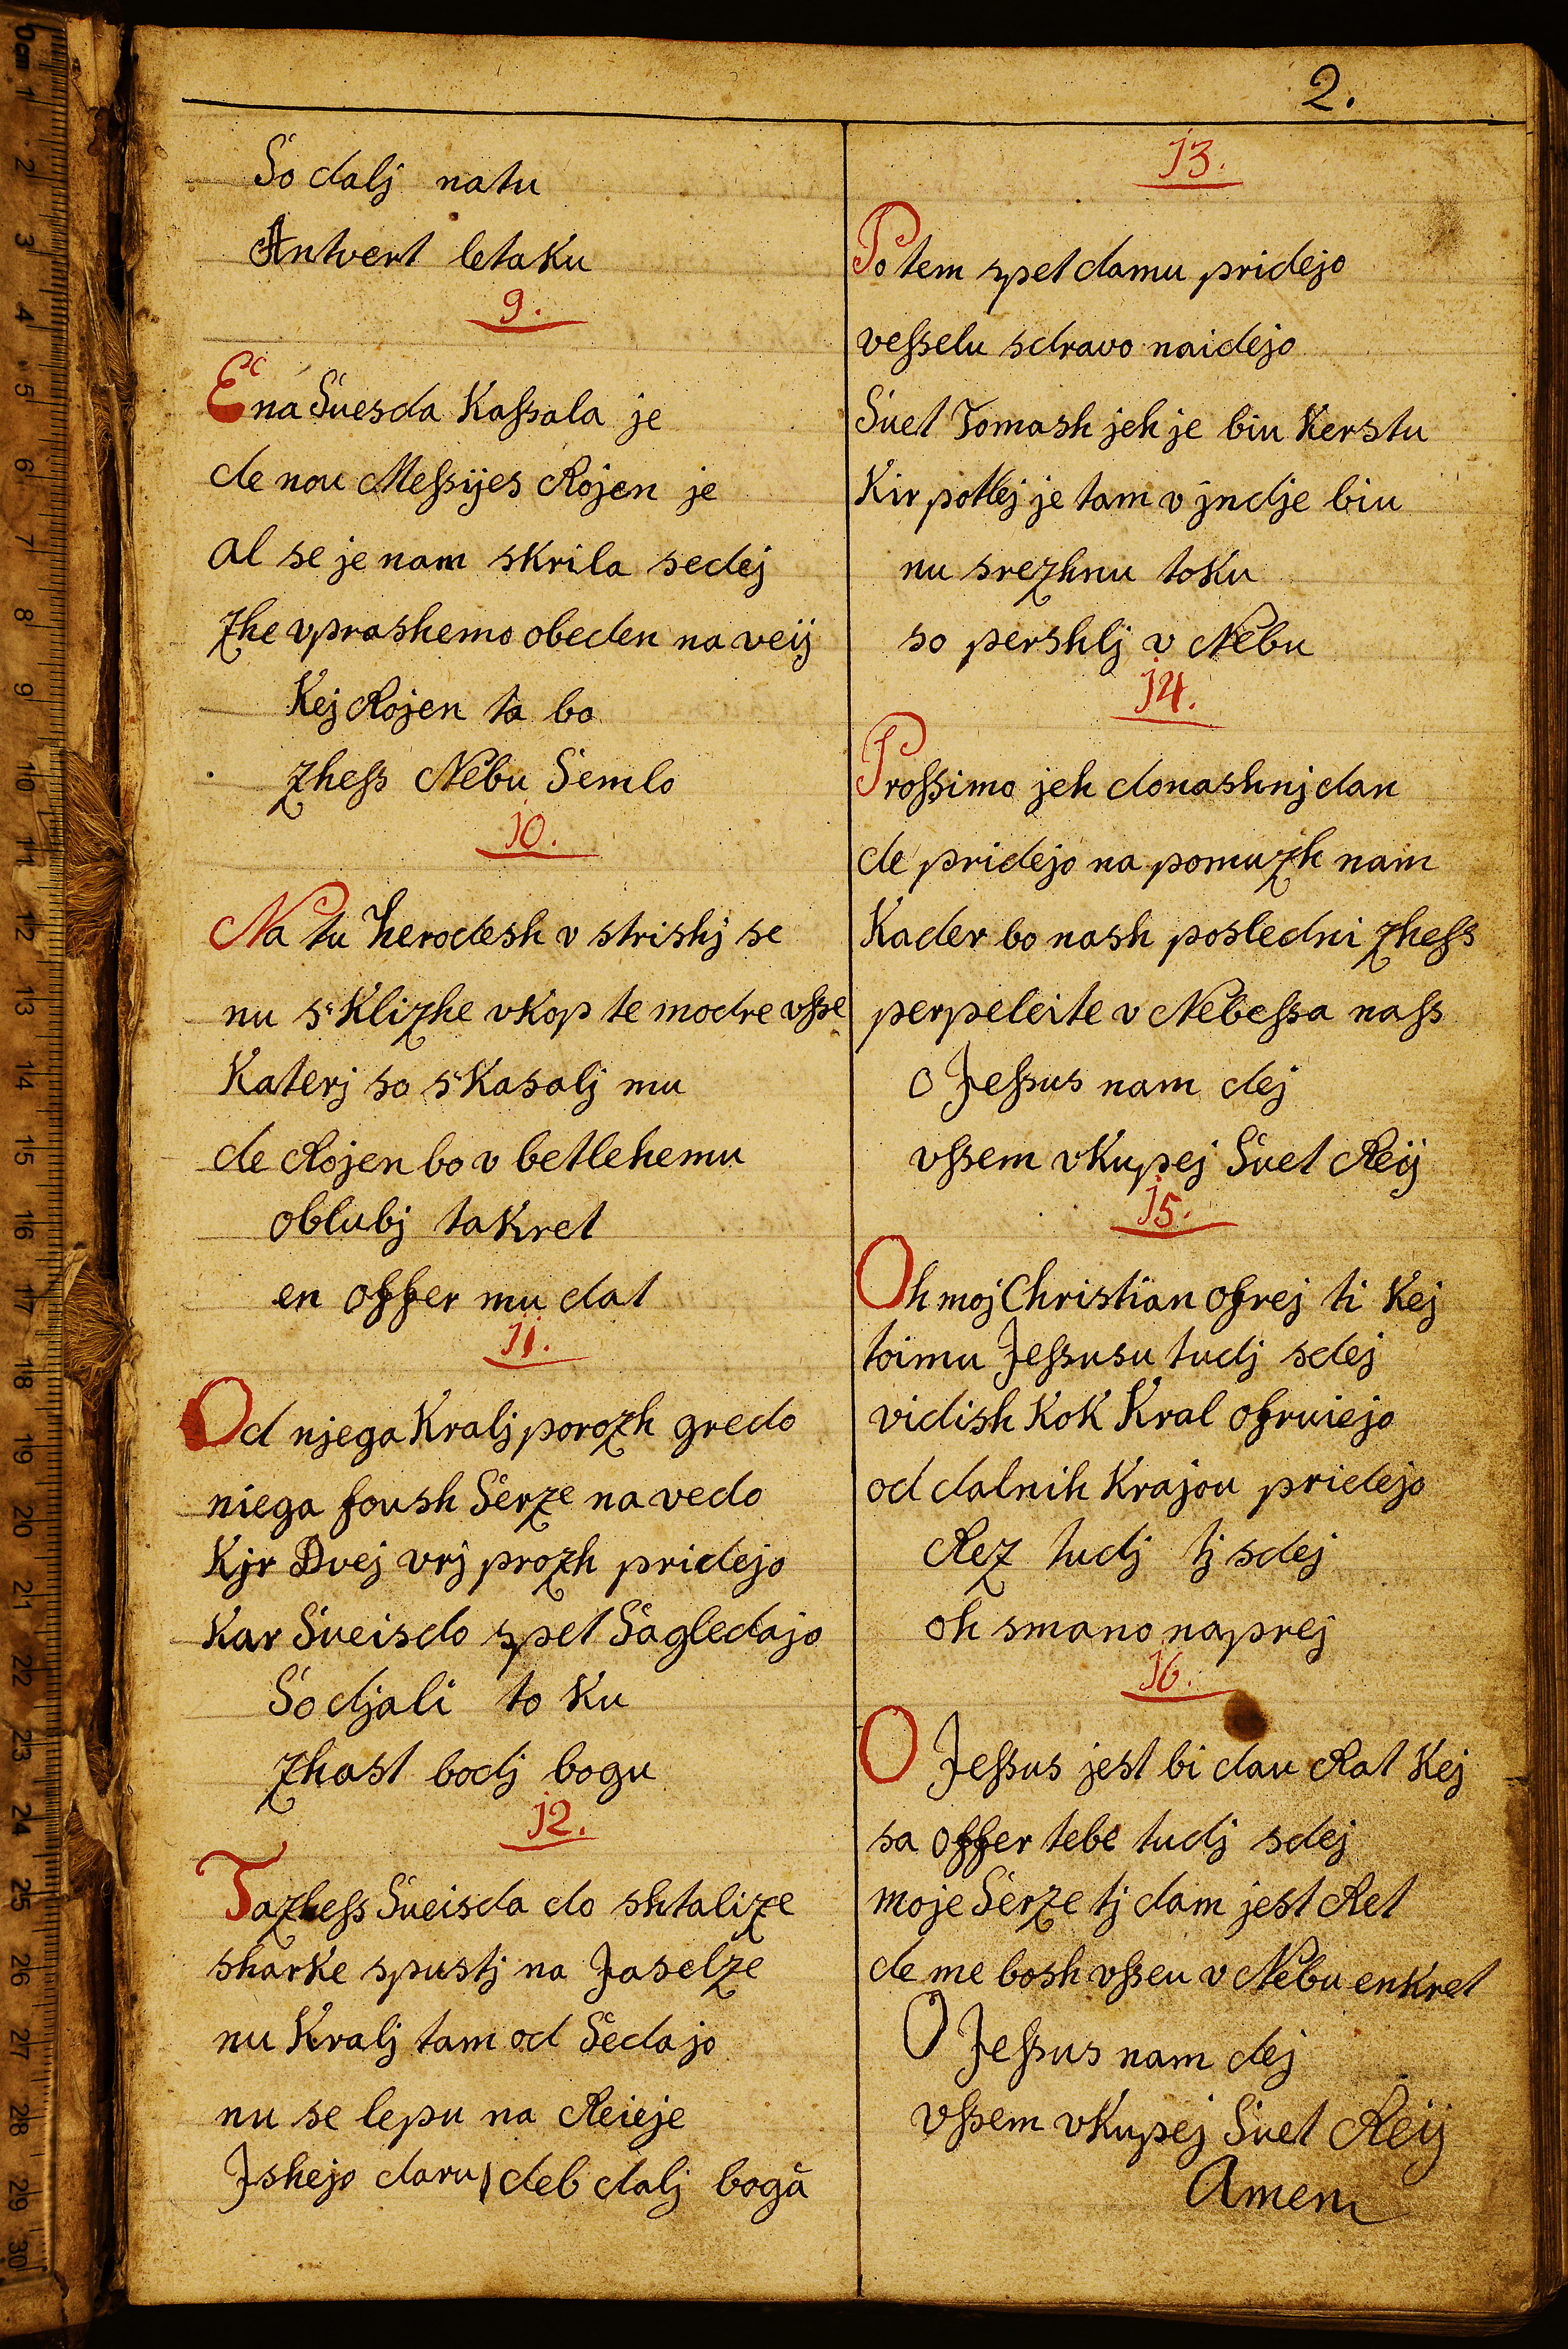 2.
So dalj natu
Antvert letaku
9.
Ena Suesda Kaſsala je
de nou Meſsijes Rojen je
al se je nam skrila sedej
zhe vprashemo obeden na veij
Kej Rojen ta bo
zheſs Nebu Semlo
10.
Na tu herodesh v strishj se
nu s'Klizhe vkop te modre vſse
Katerj so s'Kasalj mu
de Rojen bo v betlehemu
oblubj takret
en offer mu dat
11.
Od njega Kralj porozh gredo
niega foush Serze na vedo
Kjr Dvej vrj prozh pridejo
Kar Sueisdo spet Sagledajo
So djali to ku
zhast bodj bogu
12.
Tazheſs Sueisda do shtalize
sharke spustj na Jaselze
nu Kralj tam od Sedajo
nu se lepu na Reieje
Jshejo daru, deb dalj bogă
13.
Potem spet damu pridejo
veſselu sdravo naidejo
Suet Tomash jeh je biu Kerstu
Kir potlej je tam v jndje biu
nu srezhnu toku
so pershlj v Nebu
14.
Proſsimo jeh donashnj dan
de pridejo na pomuzh nam
Kader bo nash posledni zheſs
perpeleite v Nebeſsa naſs
O Jeſsus nam dej
vſsem vKupej Suet Reij
15.
Oh moj Christian ofrej ti Kej
toimu Jeſsusu tudj sdej
vidish Kok Kral ofruiejo
od dalnih Krajou pridejo
Rez tudj tj sdej
oh smano naprej
16.
O Jeſsus jest bi dau Rat Kej
sa offer tebe tudj sdej
moje Serze tj dam jest Ret
de me bosh vſseu v Nebu enkret
O Jeſsus nam dej
vſsem vKupej Suet Reij
Amem
0cm 1 2 3 4 5 6 7 8 9 10 11 12 13 14 15 16 17 18 19 20 21 22 23 24 25 26 27 28 29 30